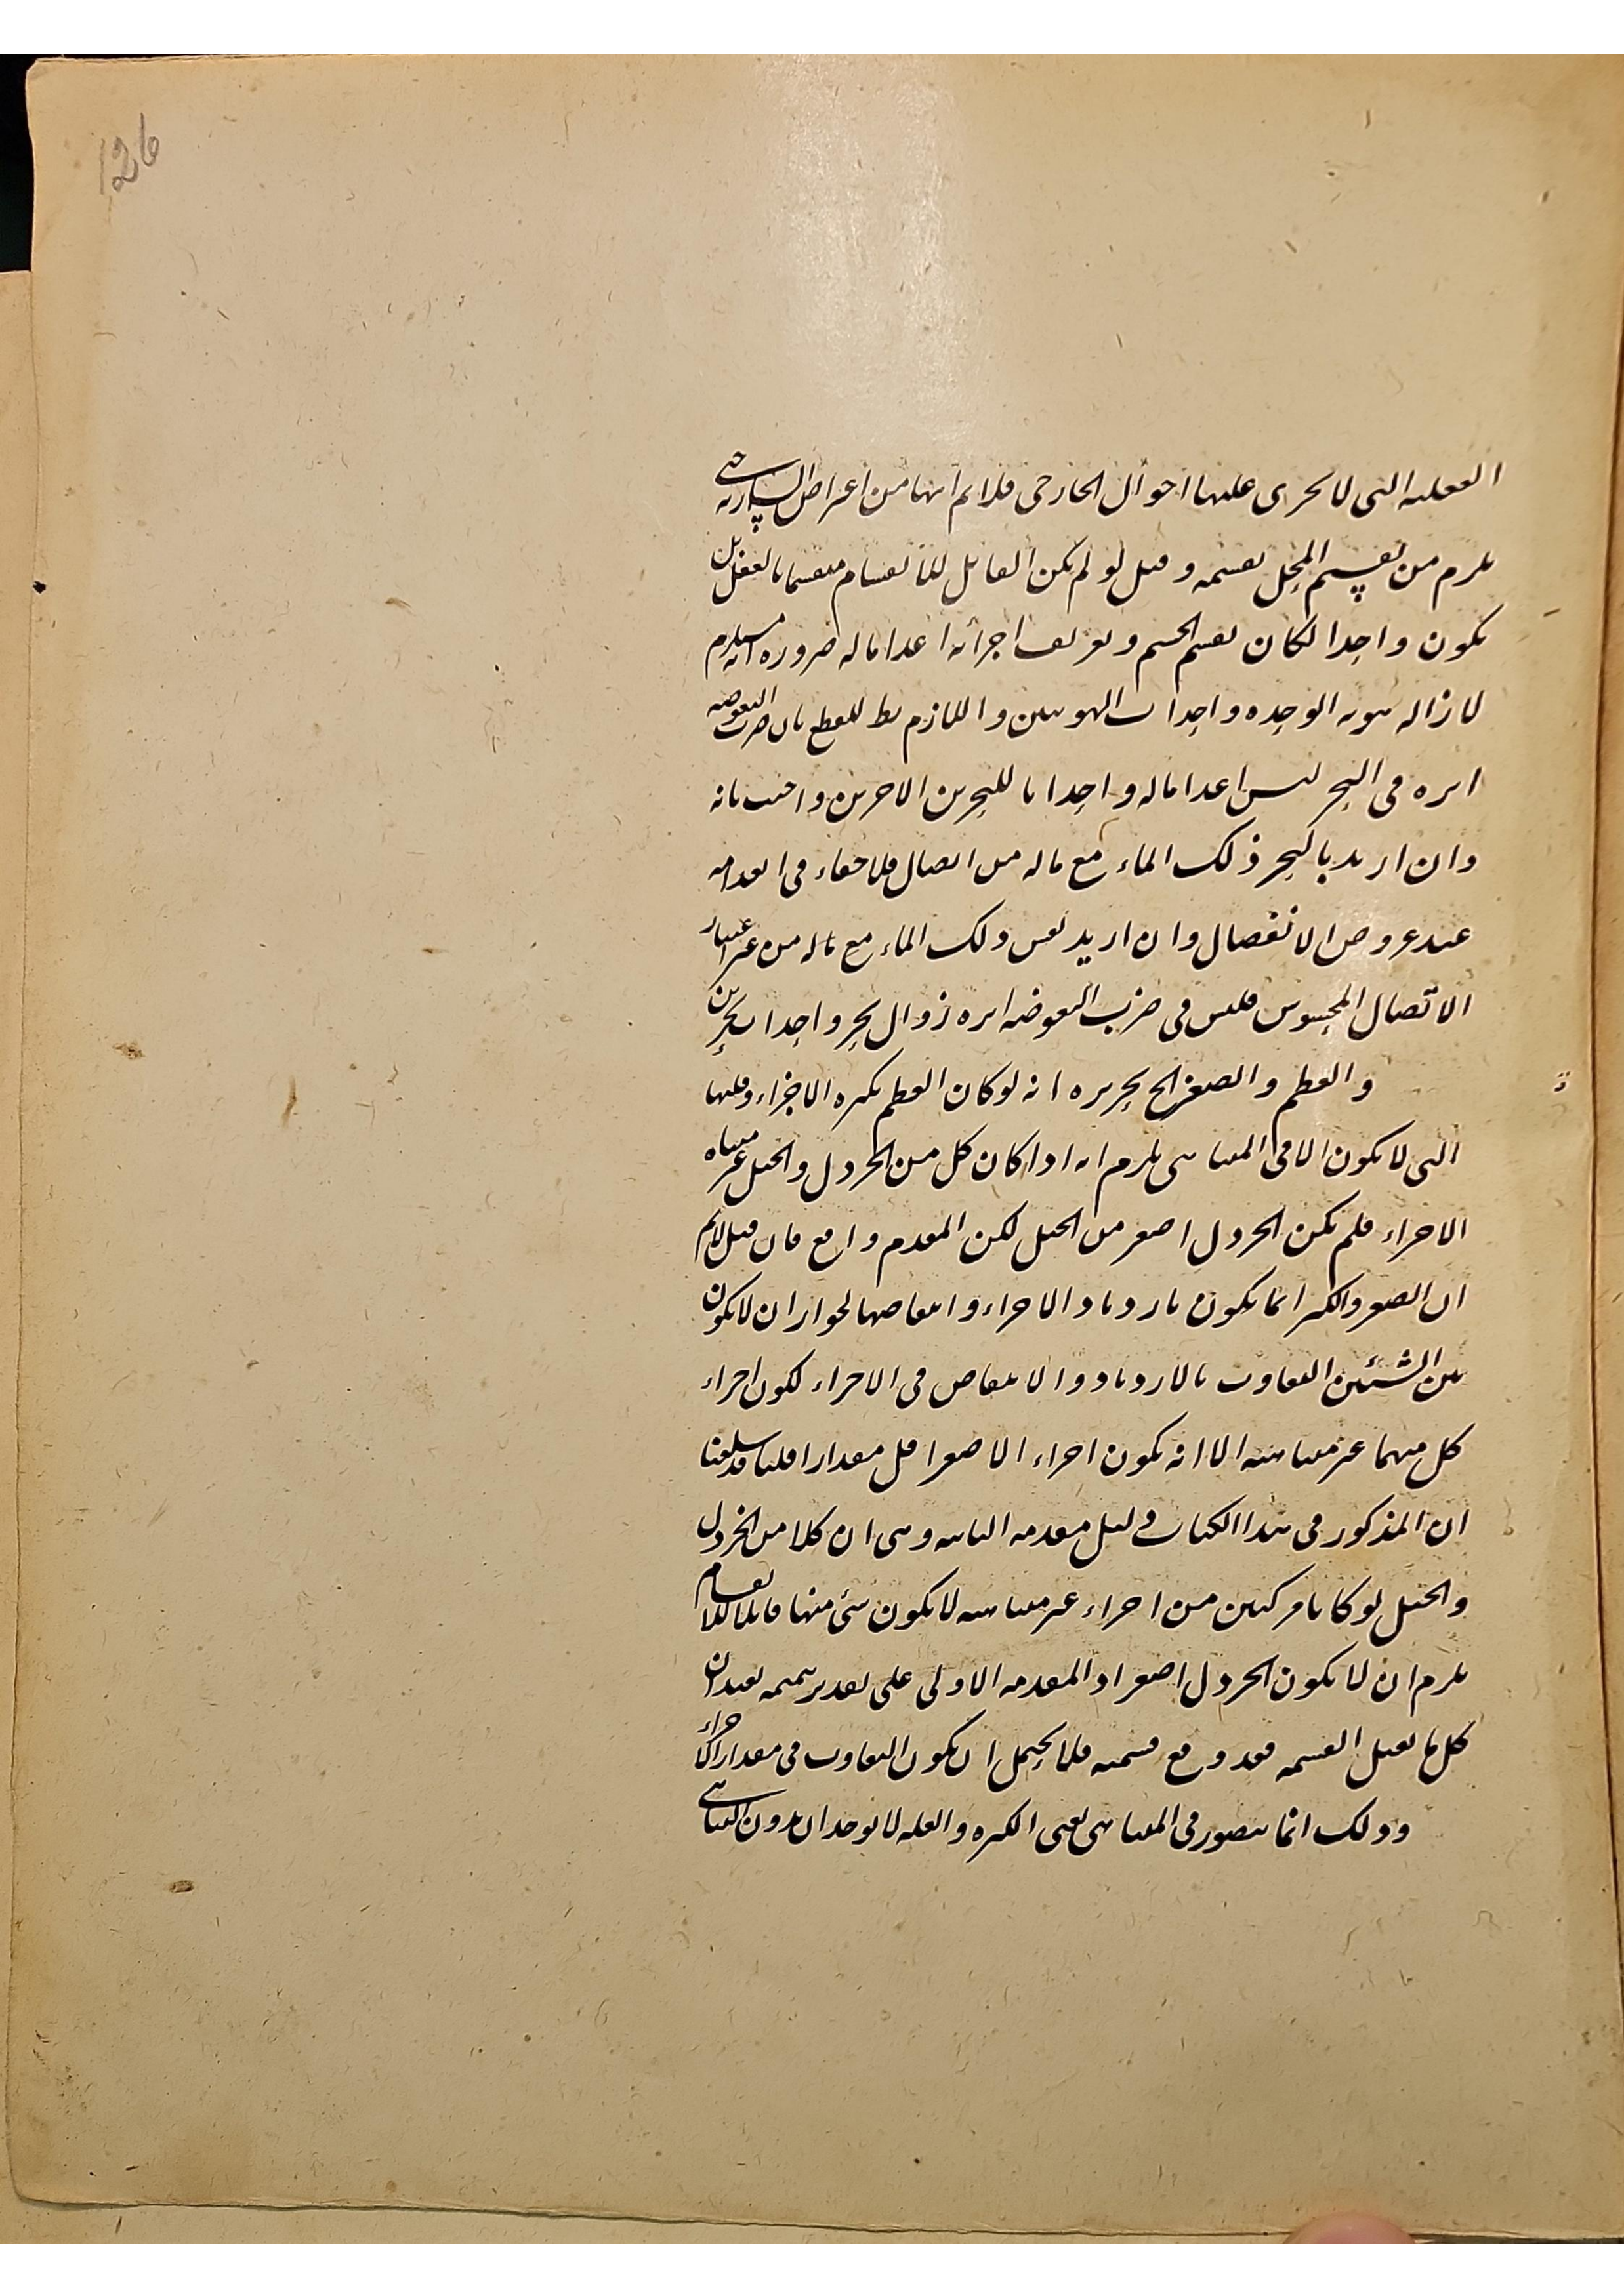 126
العقلية التى لا يجرى عليها احوال الخارجى فلا نم انها من اعراض السارية حتى
يلزم من تقسيم المحل تقسمه وقيل لو لم يكن القابل للانقسام منقسما بالفعل بل
يكون واحدا لكان تقسيم الجسم وتفريق اجزائه اعداما له ضرورة انه يلزم
لازالة هويته الوحدة واحداث الهويتين واللازم بط للقطع بان ضرب البعوضة
ابره فى البحر ليس اعداما له واحداثا للبحرين الاخرين واجيب بانه
وان اريد بالبحر ذلك الماء مع ماله من اتصال فلا خفاء فى انعدامه
عند عروض الانفصال وان اريد نفس ذلك الماء مع ماله من غير اعتبار
الاتصال المحسوس فليس فى ضرب البعوضة ابره زوال بحر واحداث بحرين
والعظم والصغر الخ تحريره انه لو كان العظم بكثرة الاجزاء وقلتها
التى لا يكون الا فى المتناهى يلزم انه اذا كان كل من الخردل والجبل غير متناه
الاجزاء فلم يكن الخردل اصغر من الجبل لكن المقدم واقع فان قيل لا نم
ان الصغر والكبر انما يكون بازدياد الاجزاء وانتقاصها لجواز ان لا يكون
بين الشيئين التفاوت بالازدياد والانتقاص فى الاجزاء لكون اجزاء
كل منهما غير متناهية الا انه يكون اجزاء الاصغر اقل مقدارا قلنا قد سلفنا
ان المذكور فى هذا الكتاب دليل مقدمه الثانيه وهى ان كلا من الخردل
والجبل لو كانا مركبين من اجزاء غير متناهية لا يكون شئ منها قابلا للانقسام
يلزم ان لا يكون الخردل اصغر اذ المقدمة الاولى على تقدير تتميمه تفيد ان
كل ما يقبل القسمة فقد وقع قسمته فلا يحتمل ان يكون التفاوت فى مقدار الاجزاء
وذلك انما يتصور فى المتناهى يعنى الكثرة والقلة لا توجدان بدون التناهى